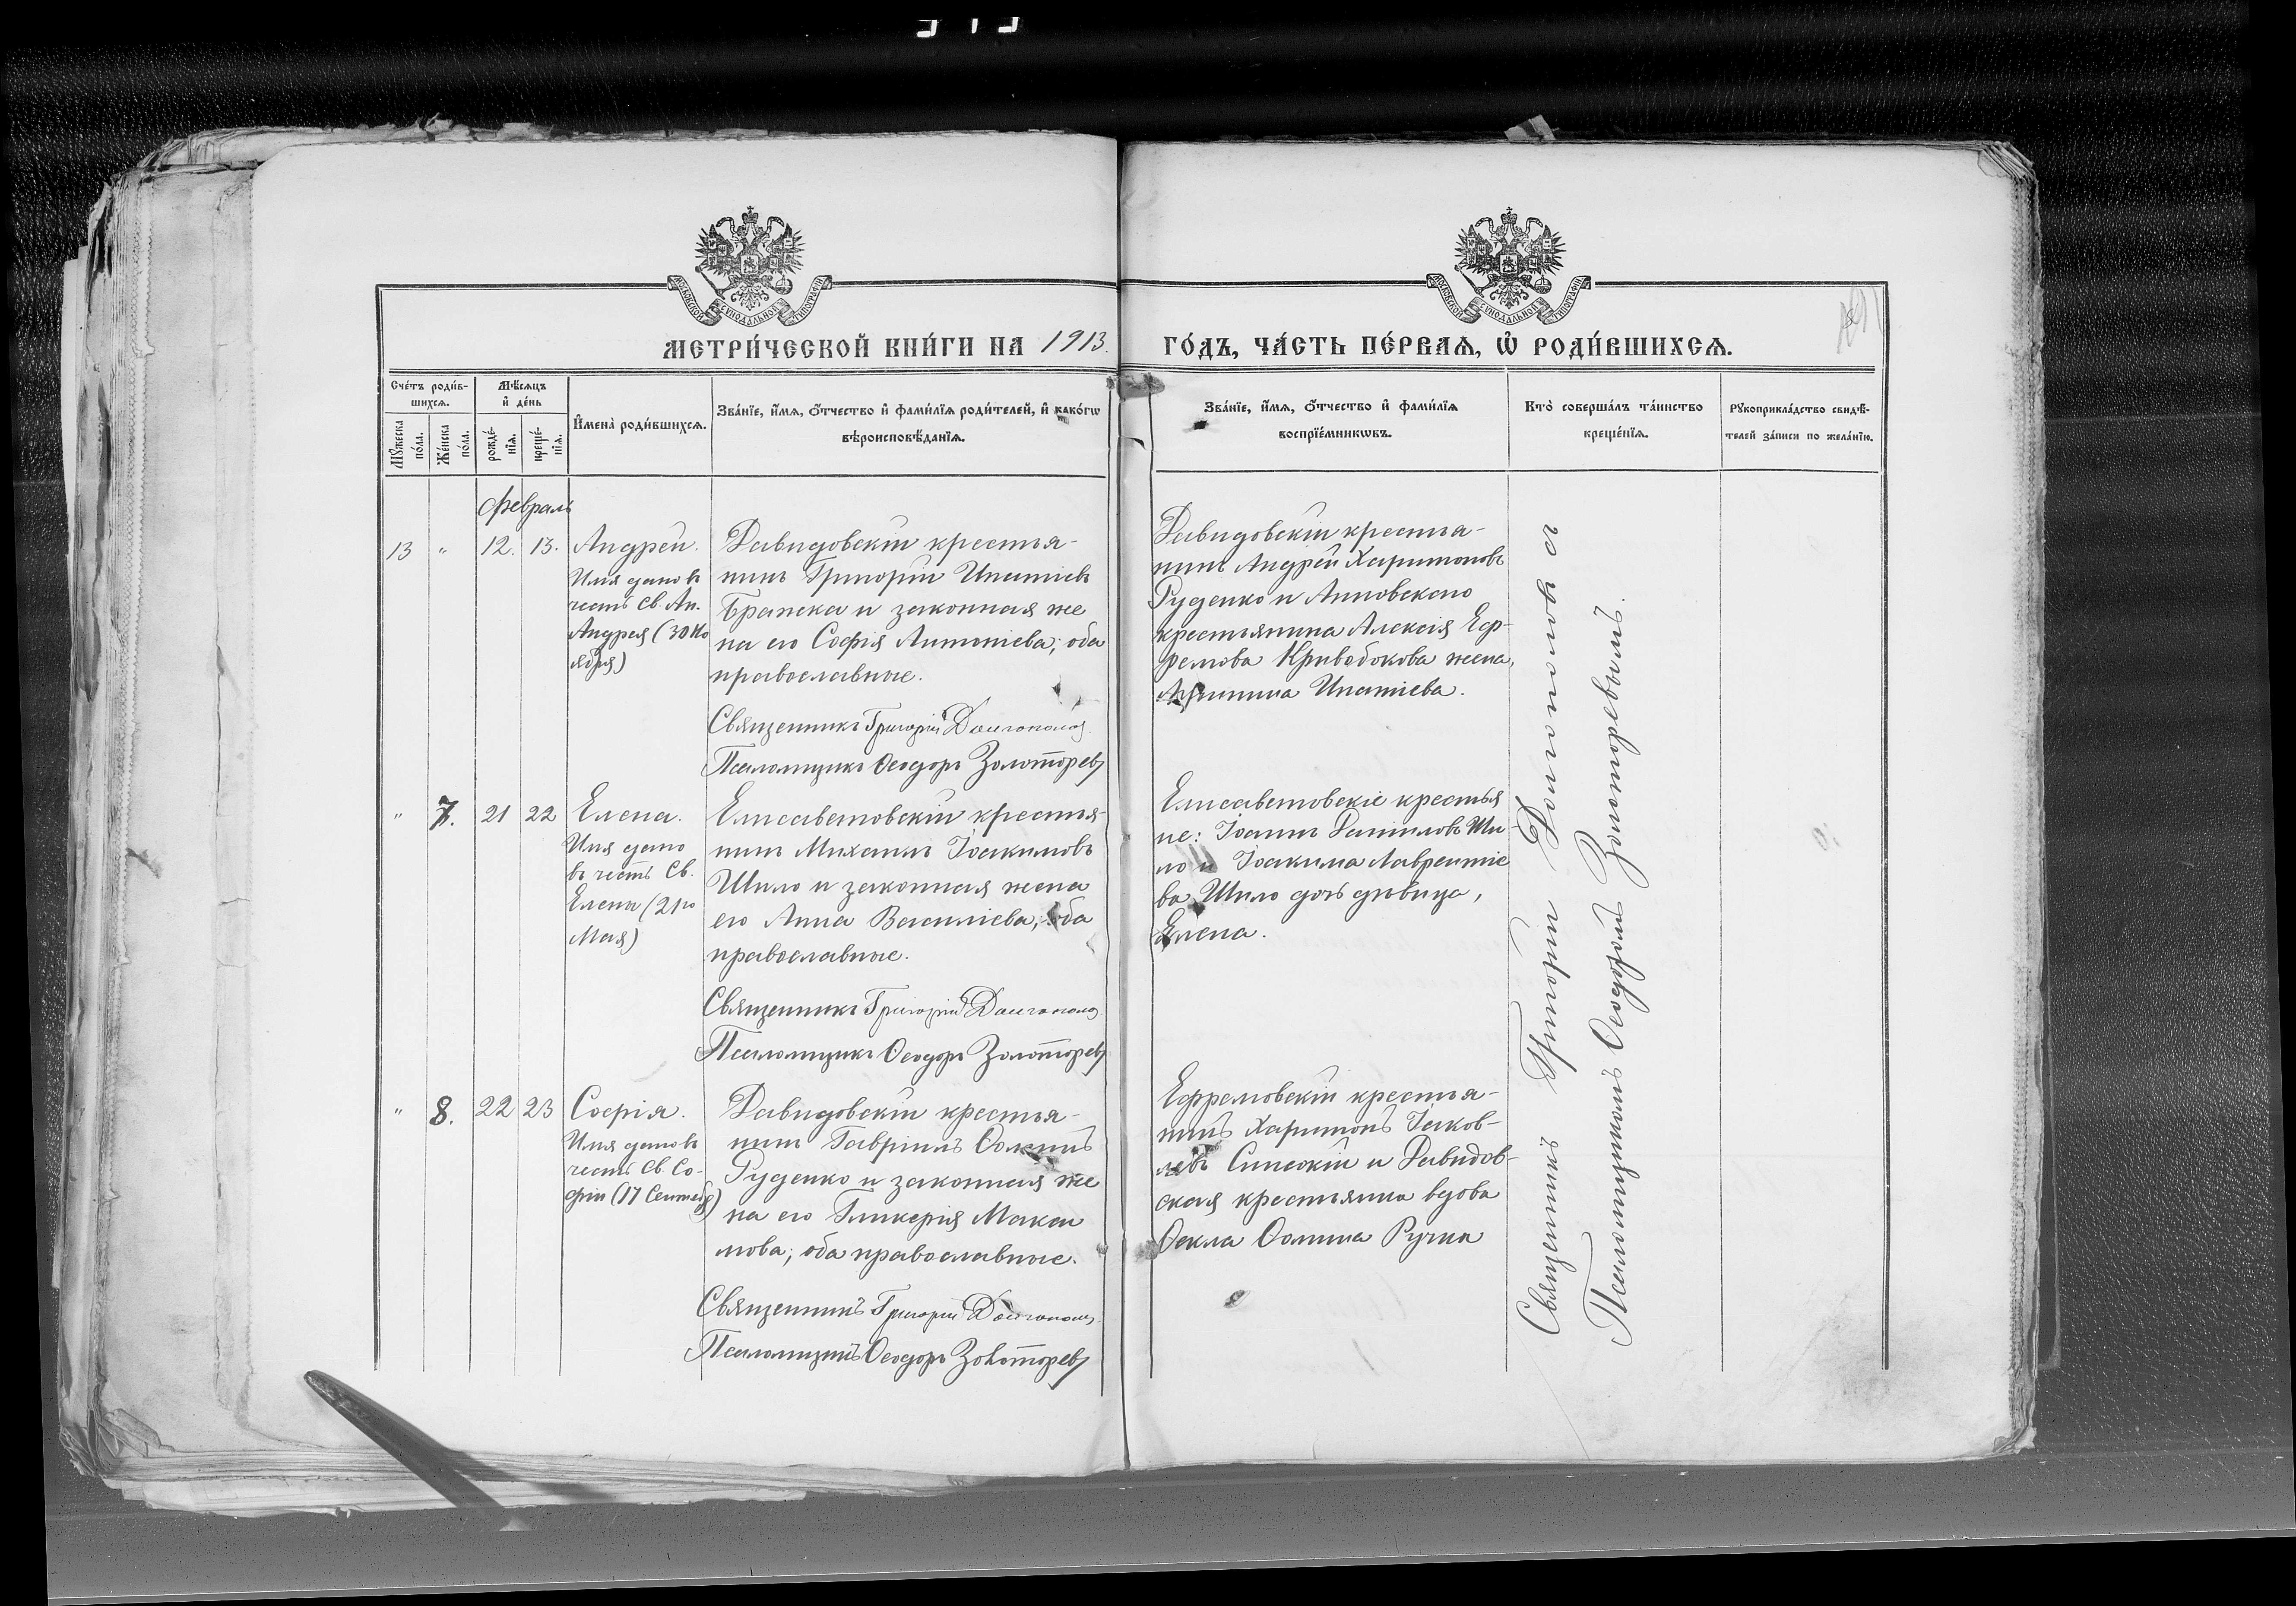 МЕТРИ́ЧЕСКОЙ КНИ́ГИ НА 1913.
ГО́ДЪ, ЧА́СТЬ ПЕ́РВАѦ, Ѡ҆ РОДИ́ВШИХСѦ.
Сче́тъ роди́в-
шихсѧ.
Мꙋ́жеска по́ла.
Же́нска по́ла.
Мѣ́сѧцъ
и҆ де́нь
рожде́-
нїѧ.
креще́-
нїѧ.
И҆мена̀ роди́вшихсѧ.
Зва́нїе, и҆́мѧ, ѻ҆́тчество и҆ фами́лїѧ роди́телей, и҆ како́гѡ
вѣроисповѣ́данїѧ.
Зва́нїе, и҆́мѧ, ѻ҆́тчество и҆ фами́лїѧ
воспрїе́мникѡвъ.
Кто̀ соверша́лъ та́инство
креще́нїѧ.
Рꙋкоприкла́дство свидѣ́-
телей за́писи по жела́нїю.
Февраль
13 " 12. 13. Андрей.
Имя дано въ
честь Св. Ап.
Андрея (30 Но
ября)
Давидовскій крестья-
нинъ Григорій Ипатіевъ
Бражка и законная же
на его Софія Антоніева; оба
православные.
Священникъ Григорій Долгополовъ
Псаломщикъ Ѳеодоръ Золоторевъ
Давидовскій крестья-
нинъ Андрей Харитоновъ
Руденко и Анновскаго
крестьянина Алексія Еф-
ремова Кривобокова жена,
Ипатіева.
" 7. 21 22 Елена.
Имя дано
въ честь Св.
Елены (21го
Мая)
Елисаветовскій крестья-
нинъ Михаилъ Іоакимовъ
Шило и законная жена
его Анна Василіева; оба
православные.
Священникъ Григорій Долгополовъ
Псаломщикъ Ѳеодоръ Золоторевъ
Елисаветовскіе крестья
не: Іоаннъ Даніиловъ Ши-
ло и Іоакима Лаврентіе
ва Шило дочь дѣвица,
Елена.
" 8. 22 23 Софія.
Имя дано въ
честь Св. Со-
фіи (17 Сентября)
Давидовскій крестья-
нинъ Гавріилъ Ѳоминъ
Руденко и законная же
на его Гликерія Макси
мова; оба православные.
Священникъ Григорій Долгополовъ
Псаломщикъ Ѳеодоръ Золоторевъ
Ефремовскій крестья-
нинъ Харитонъ Іаков-
левъ Синокій и Давидов-
ская крестьянка вдова
Ѳекла Ѳомина
Священникъ Григорій Долгополовъ съ
Псаломщикомъ Ѳеодоромъ Золоторевымъ.